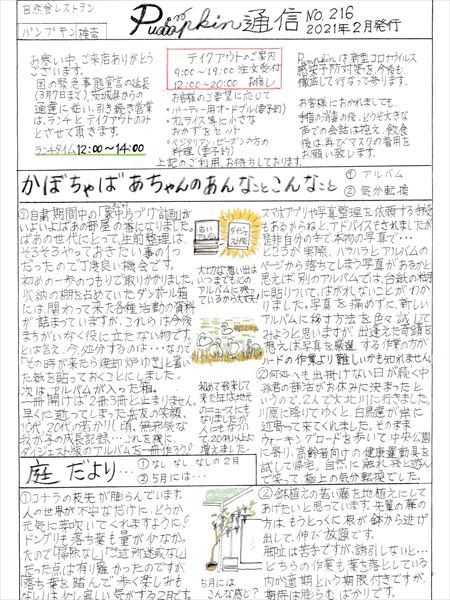 自然食レストラン
パンプキン 検索
Pumpkin通信
NO.216
2021年2月発行
お寒い中、ご来店ありがとう
ございます。
国の緊急事態宣言の延長
(3月7日まで)、茨城県からの
とさせて頂きます。
ランチタイム12:00〜14:00
テイクアウトのご案内
9:00〜19:00 注文受付
12:00〜20:00 お渡し
お客様のご要望に応じて
・パーティーオードブル(要予約)
・オムライス等に小さな
おかずをセット
・ベジタリアン・ビーガンの方の
料理(要予約)
上記のご利用、お待ちしております。
Pumpkinは新型コロナウイルス
感染予防対策を今後も
徹底して行なって参ります。
お客様におかれましても、
手指の消毒の後、どうぞ大きな
声での会話は控え、飲食
後は、再びマスクの着用を
お願い致します。
かぼちゃばあちゃんのあんなことこんなこと
① アルバム
② 気分転換
①自粛期間中の「家中片づけ計画」が
いよいよばあの部屋の番になりました。
ばあの世代にとって、生前整理は、
そろそろやっておきたい事の1つ
だったので丁度良い機会です。
初めの一歩のつもりで取りかかりました。
収納の棚を占めていたダンボール箱
には、関わって来た各種活動の資料
が詰まっていますが、これらは今後
まちがいなく役に立たない物です。
とは言え、今、処分するのは・・・なので
「その時が来たら焼却炉ゆき」と書い
た紙を貼っておくことにしました。
次は、アルバムが入った箱。
一冊開けば2冊3冊と止まりません。
早くに逝ってしまった岳友の笑顔、
10代、20代の若かりし頃、無邪気な
我が子の成長記録・・・これを機に、
ダイジェスト版のアルバムを一冊作ろう!
大切な想い出は
いつまでもこの
アルバムに残っ
ているから大丈夫!
初めて飛来し
て来た年は地元
のニュースにも
なりましたが、
1人にも奇がっ
て20羽以上に
増えました
スマホアプリや写真整理を依頼する手段
もあるからねと、アドバイスもされましたが
是非自分の手で本物の写真で・・・
ところが実際、ハラハラとアルバムの
ページから落ちてしまう写真があるかと
思えば、別のアルバムでは、台紙の糊が
に貼りついてはがれないことがわか
りました。写真を痛めずに、新しい
アルバムに移す方法を色々試して
みようと思いますが、出逢えた奇蹟を
思えば、写真を厳選する作業の方が
ハードの作業より難しいかも知れません。
②何処へも出掛けない日が続く中
孫君の部活がお休みに決まったと
いうので、2人で大北川に行きました。
川原に降りてゆくと、白鳥達が岸に
近寄って来てくれました。そのまま
ウォーキングロードを歩いて、中央公園
に寄り、高齢者向けの健康運動具を
試して帰宅。自然に触れ、孫と遊ん
で笑って、極上の気分転換でした。
庭だより・・・
① なし なし なしの2月
② 5月には・・・
①コナラの枝先が膨らんでいます。
人の世界が不安なだけに、どうか
元気に芽吹いてくれますように!
ドングリも落ち葉も量が少なか
ったので「掃除なし」「ご近所迷惑なし」
だった点は有り難かったのですが、
落ち葉を踏んで歩く楽しみも
なしは少し寂しい気がする2月です。
5月には
こんな感じ?
②鉢植えの若い藤を地植えにして
あげたいと思っています。先輩の藤の
方は、もうとっくに根が鉢から逃げ
出して、伸び放題です。
脚立は苦手ですが、誘引しないと・・・
どちらの作業も葉を落としている
内が適期という期限付きですが、
期待は膨らむばかりです。